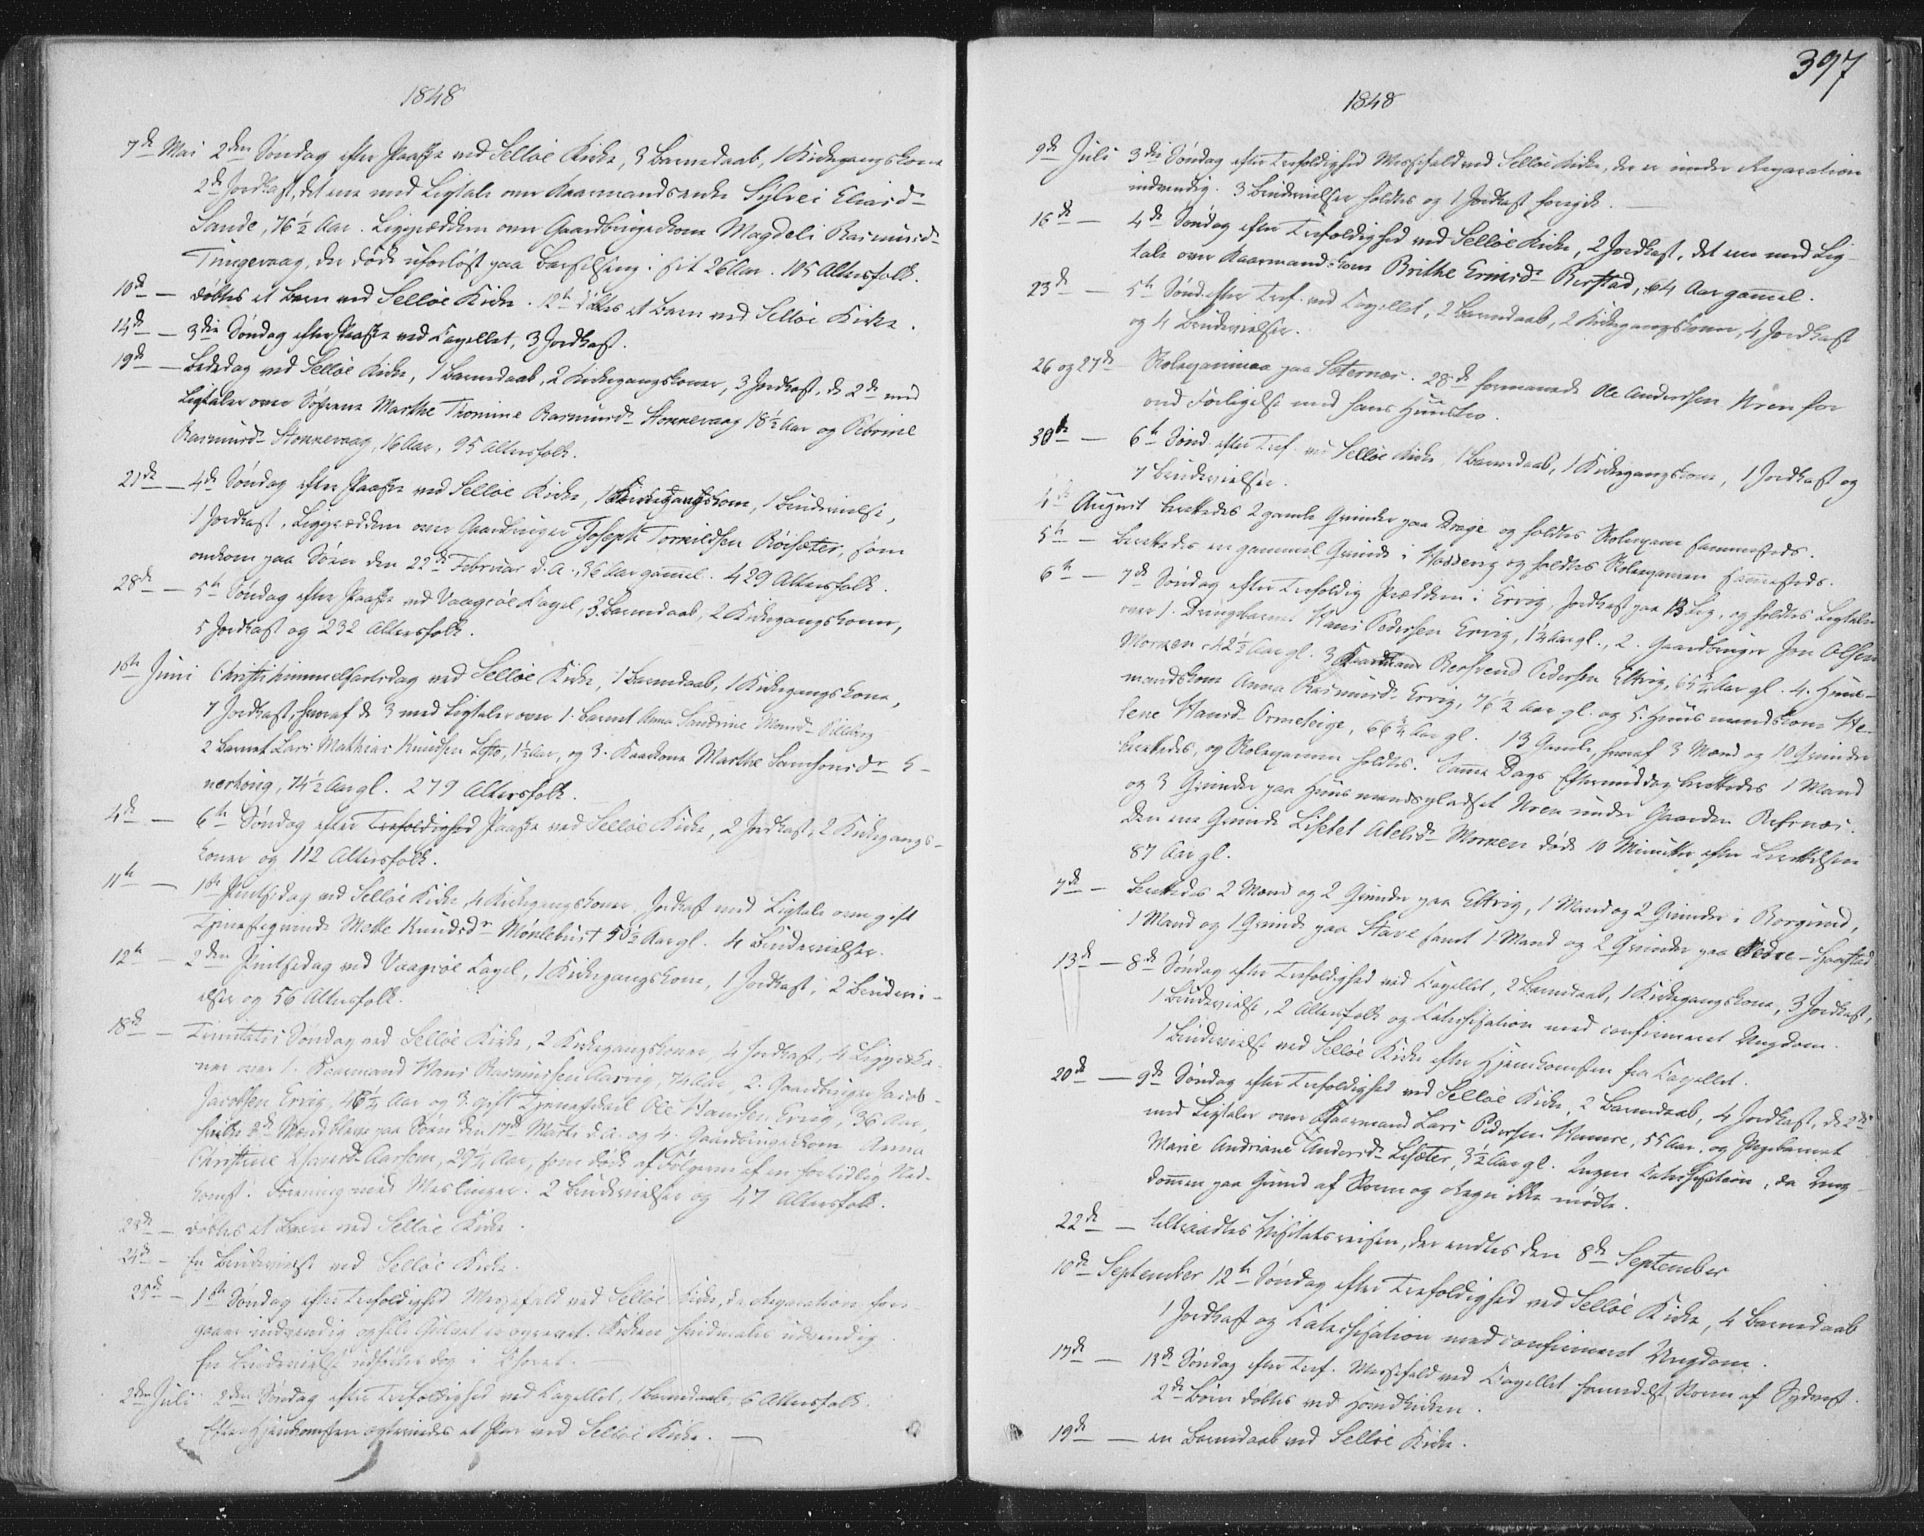 1848
7de Mai 2den Søndag efter Paaske ved Selløe Kirke, 3 Barnedaab, 1 Kirkegangskone
2de Jordkast, det ene med Ligtale over Kaarmandsenke Sylvei Eliasd-
Sande, 76½ Aar. Ligprædiken over Gaardbrugerkone Magdeli Rasmusd-
Tungevaag, der døde uforløst paa Barselseng i sit 26 Aar. 105 Altersfolk.
10de — døbtes et Barn ved Selløe Kirke. 12te døbtes et Barn ved Selløe Kirke.
14de — 3die Søndag efter Paaske ved Capellet, 3 Jordkast.
19de — Bededag ved Selløe Kirke, 1 Barnedaab, 2 Kirkegangskoner, 3 Jordkast, de 2de med
Ligtaler over Søstrene Marthe Thomine Rasmusd- Stonnevaag 18½ Aar og Petrine
Rasmusd- Stonnevaag, 16 Aar, 95 Altersfolk.
21de — 4de Søndag efter Paaske ved Selløe Kirke, 1 Kirkegangskone, 1 Brudevielse,
1 Jordkast, Ligprædiken over Gaardbruger Joseph Tornildsen Röisæter, som
omkom paa Søen den 22de Februar d. A., 36 Aar gammel. 429 Altersfolk.
28de — 5te Søndag efter Paaske ved Vaagsøe Capel, 3 Barnedaab, 2 Kirkegangskoner,
5 Jordkast og 232 Altersfolk.
1ste Juni Christi himmelfartsdag ved Selløe Kirke, 1 Barnedaab, 1 Kirkegangskone,
7 Jordkast, hvoraf de 3 med Ligtaler over 1. Barnet Anna Sandrine Monsd-
2 Barnet Lars Mathias Knudsen 1½ Aar, og 3. Kaarkone Marthe Samsonsd-
74½ Aar gl. 279 Altersfolk.
4de — 6te Søndag efter Trefoldighed Paaske ved Selløe Kirke, 2 Jordkast, 2 Kirkegangs-
koner og 112 Altersfolk.
11te — 1ste Pintsedag ved Selløe Kirke, 4 Kirkegangskoner, Jordkast med Ligtale over gift
Tjenestqvinde Mette Knudsdr Mönlebust 50½ Aar gl. 4 Brudevielser.
12te — 2den Pintsedag ved Vaagsøe Capel, 1 Kirkegangskone, 1 Jordkast, 2 Brudevi-
elser og 56 Altersfolk.
18de — Trinitatis Søndag ved Selløe Kirke, 2 Kirkegangskoner, 4 Jordkast, 4 Ligprædike-
ner over 1. Kaarmand Hans Rasmussen Aarvig, 74 Aar, 2. Gaardbruger Jacob
Jacobsen Ervig, 46¼ Aar og 3. gift Tjenestekarl Ole Hansen Ervig, 36 Aar,
paa Søen den 17de Marts d. A. og 4. Gaardbrugerkone Anna
Christine 29¼ Aar, som døde af Følgerne af en fortidlig Ned-
komst. Forening med Meslinger. 2 Brudevielser og 47 Altersfolk.
23de — døbtes et Barn ved Selløe Kirke.
24de — En Brudevielse ved Selløe Kirke.
25de — 1ste Søndag efter Trefoldighed Messefald ved Selløe Kirke, da Reparation fore-
gaaer indvendig og hele Gulvet er oprevet. Kirken udvendig.
En Brudevielse udførtes dog i Choret.
2den Juli 2den Søndag efter Trefoldighed ved Capellet, 1 Barnedaab, 6 Altersfolk.
Efter Hjemkomsten et Par ved Selløe Kirke. —
397
1848
9de Juli 3die Søndag efter Trefoldighed Messefald ved Selløe Kirke, der er under Reparation
indvendig. 3 Brudevielser holdtes og 1 Jordkast foregik.
16de — 4de Søndag efter Trefoldighed ved Selløe Kirke, 2 Jordkast, det ene med Lig-
tale over Kaarmandskone Brithe Ermisd- Berstad, 64 Aar gammel.
23de — 5te Sønd. efter Tref. ved Capellet, 2 Barnedaab, 2 Kirkegangskoner, 4 Jordkast
og 4 Brudevielser.
26 og 27de Skoleexamina paa Saternæs. 28de formanede Ole Anderssen Nren for
ond Forligelse med hans Huustro.
30te — 6te Sønd. efter Tref. ved Selløe Kirke, 1 Barnedaab, 1 Kirkegangskone, 1 Jordkast og
7 Brudevielser.
4de August berettedes 2 gamle Qvinder paa Drage og holdtes Skoleexamen sammesteds.
5te — Berettedes en gammel Qvinde i Hoddevig og holdtes Skoleexamen sammesteds.
6te — 7de Søndag efter Trefoldig Prædiken i Ervig, Jordkast paa 13 Lig, og holdtes Ligtaler
over 1. Drengebarnet Hans Pedersen Ervig, 1¼ Aar gl., 2. Gaardbruger Jon Olsen
Morken, 42½ Aar gl. 3 Kaarmand Rasmus Pedersen Eltvig, 65¾ Aar gl. 4. Huus-
mandskone Anna Rasmusd- Ervig, 76½ Aar gl. og 5. Huusmandskone He-
lene Hansd- Ormeseige, 66¾ Aar gl. 13 Gamle, hvoraf 3 Mænd og 10 Qvinder
berettedes, og Skoleexamen holdtes. Samme Dags Eftermiddag berettedes 1 Mand
og 3 Qvinder paa Huusmandspladset Nren under Gaarden Refsnæs.
Den ene Qvinde Lisbet Atlesd- Morken døde 10 Minutter efter Berettelsen
87 Aar gl.
7de — Berettedes 2 Mænd og 2 Qvinder paa Eltvig, 1 Mand og 2 Qvinder i Borgund,
1 Mand og 1 Qvinde paa Stave samt 1 Mand og 2 Qvinder paa Nedre-
13de — 8de Søndag efter Trefoldighed ved Capellet, 2 Barnedaab, 1 Kirkegangskone, 3 Jordkast,
1 Brudevielse, 2 Altersfolk og Katechisation med confirmeret Ungdom.
1 Brudevielse ved Selløe Kirke efter Hjemkomsten fra Capellet.
20de — 9de Søndag efter Trefoldighed ved Selløe Kirke, 2 Barnedaab, 4 Jordkast, de 2de
med Ligtaler over Kaarmand Lars Pedersen Hamre, 55 Aar, og Pigebarnet
Marie Andriane Andersd- Lesæter, 3½ Aar gl. Ingen Katechisation, da Ung-
dommen paa Grund af Storm og Regn ikke mødte.
22de — tiltraadtes Visitatsreisen, der endtes den 8de September
10de September 12te Søndag efter Trefoldighed ved Selløe Kirke, 4 Barnedaab
1 Jordkast og Katechisation med confirmeret Ungdom.
17de — 13de Søndag efter Tref. Messefald ved Capellet formedelst Storm af Sydvest.
2de Børn døbtes ved Hovedkirken.
19de — en Barnedaab ved Selløe Kirke.